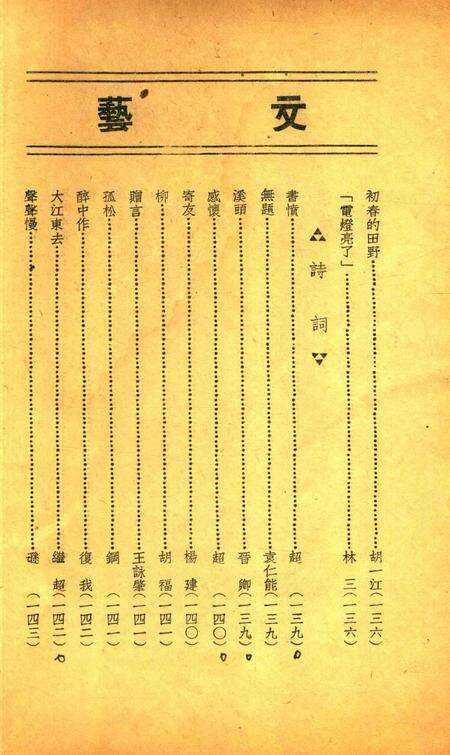 文藝
初春的田野 胡一江(一三六)
「電燈亮了」 林 三(一三六)
詩詞
書憤 超(一三九)
無題 袁仁能(一三九)
溪頭 晉 卿(一三九)
感懷 超(一四〇)
寄友 楊 建(一四〇)
柳 胡 福(一四一)
贈言 王詠肇(一四一)
孤松 鋼(一四一)
醉中作 復 我(一四二)
大江東去 繼 超(一四二)
聲聲慢 (一四三)